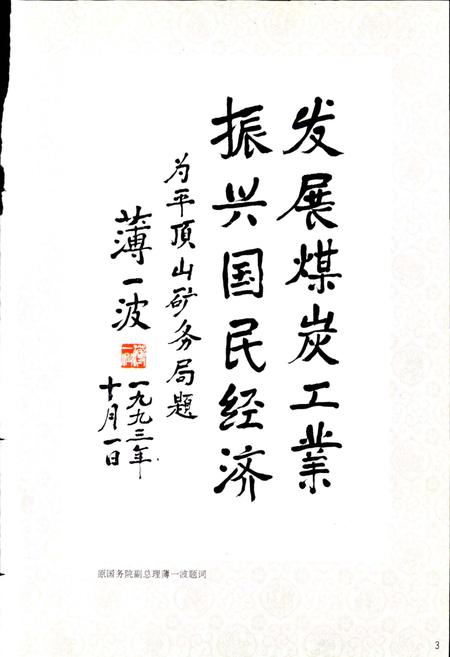 发展煤炭工業
振兴国民经济
为平頂山矿务局题
薄一波
一九九三年
十月一日
原国务院副总理薄一波题词
3